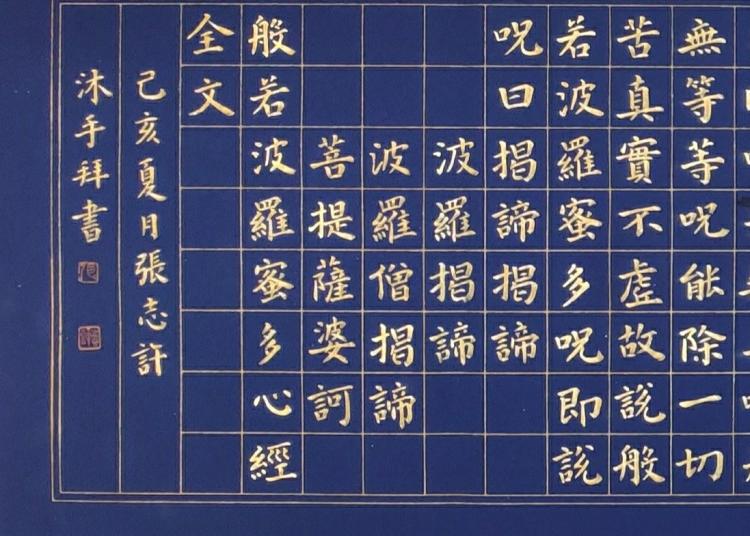 無等等呪能除一切
苦真實不虛故說般
若波羅蜜多呪即說
呪曰揭諦揭諦
波羅揭諦
波羅僧揭諦
菩提薩婆訶
般若波羅蜜多心經
全文
己亥夏月張志許
沐手拜書